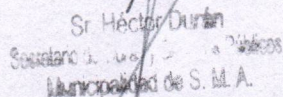 Sr. Héctor Durán
Secretario Públicos
Municipalidad de S. M. A.